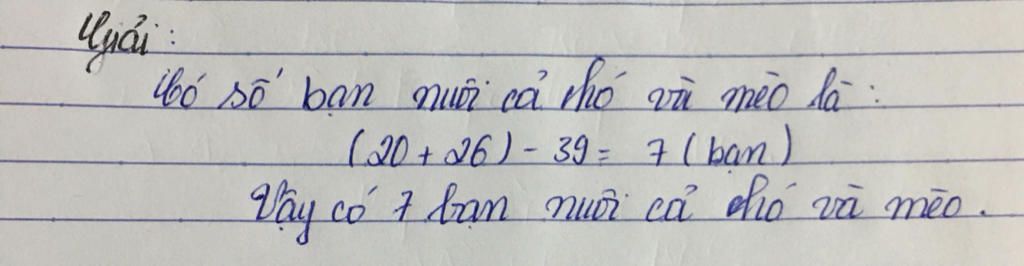 Giải:
Có số bạn nuôi cả chó và mèo là:
(20 + 26) - 39 = 7 (bạn)
Vậy có 7 bạn nuôi cả chó và mèo.